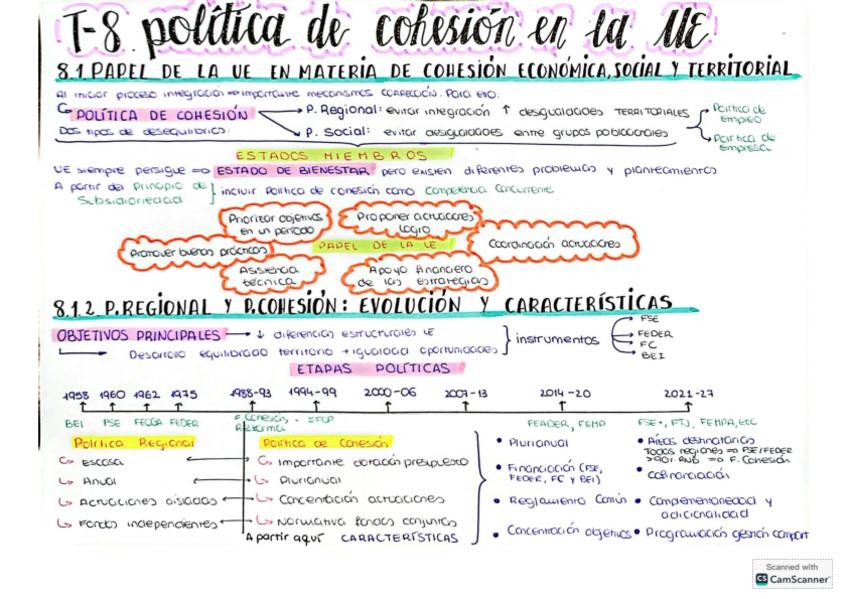 T-8 política de cohesión en la UE
8.1. PAPEL DE LA UE EN MATERIA DE COHESIÓN ECONÓMICA, SOCIAL Y TERRITORIAL
Al iniciar proceso integración ⇒ importante mecanismos corrección. Para ello:
POLÍTICA DE COHESIÓN → P. Regional: evitar integración ↑ desigualdades TERRITORIALES
Dos tipos de desequilibrios: → P. Social: evitar desigualdades entre grupos poblacionales
Política de empleo
Política de empresa
ESTADOS MIEMBROS
UE siempre persigue ⇒ ESTADO DE BIENESTAR pero existen diferentes problemas y planteamientos
A partir del Principio de Subsidiariedad } incluir Política de cohesión como Competencia Concurrente
Priorizar objetivos en un período
Proponer actuaciones logro
Promover buenas prácticas
PAPEL DE LA UE
Coordinación actuaciones
Asistencia técnica
Apoyo financiero de las estrategias
8.1.2. P.REGIONAL Y P.COHESIÓN: EVOLUCIÓN Y CARACTERÍSTICAS
OBJETIVOS PRINCIPALES → ↓ diferencias estructurales UE
Desarrollo equilibrado territorio + igualdad oportunidades } instrumentos
FSE
FEDER
FC
BEI
ETAPAS POLÍTICAS
1958 1960 1962 1975 1988-93 1994-99 2000-06 2007-13 2014-20 2021-27
BEI FSE FEOGA FEDER F. Cohesión, IFOP FEADER, FEMP FSE+, FTJ, FEMPA, etc
Reforma
Política Regional
Escasa
Anual
Actuaciones aisladas
Fondos independientes
Política de Cohesión
Importante dotación presupuesto
Plurianual
Concentración actuaciones
Normativa fondos conjuntos
A partir aquí CARACTERÍSTICAS
• Plurianual
• Financiación (FSE, FEDER, FC y BEI)
• Reglamento Común
• Concentración objetivos
• Áreas destinatarias
Todas regiones ⇒ FSE/FEDER
>90% RNB ⇒ F. Cohesión
• Cofinanciación
• Complementariedad y adicionalidad
• Programación gestión compart
Scanned with
CS CamScanner